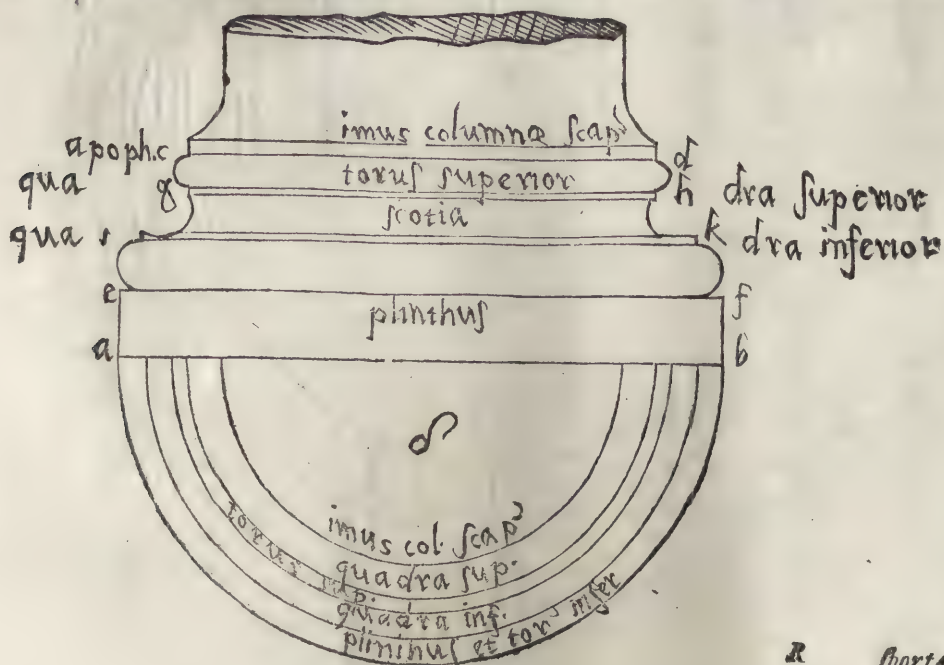 imus columnæ ſcapꝰ
apoph. c d
torus ſuperior
qua g h dra ſuperior
ſcotia
qua k dra inferior
e f
plinthuſ
a b
imus col. ſcapꝰ
quadra ſup.
torus ſup.
quadra inf.
plinthus et torꝰ infer
R